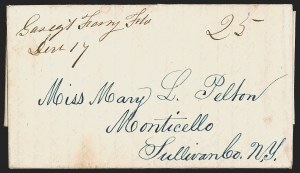 Ferry Flo 25
17
Miss Mary L. Pelton
Monticello
Sullivan Co. N.Y.